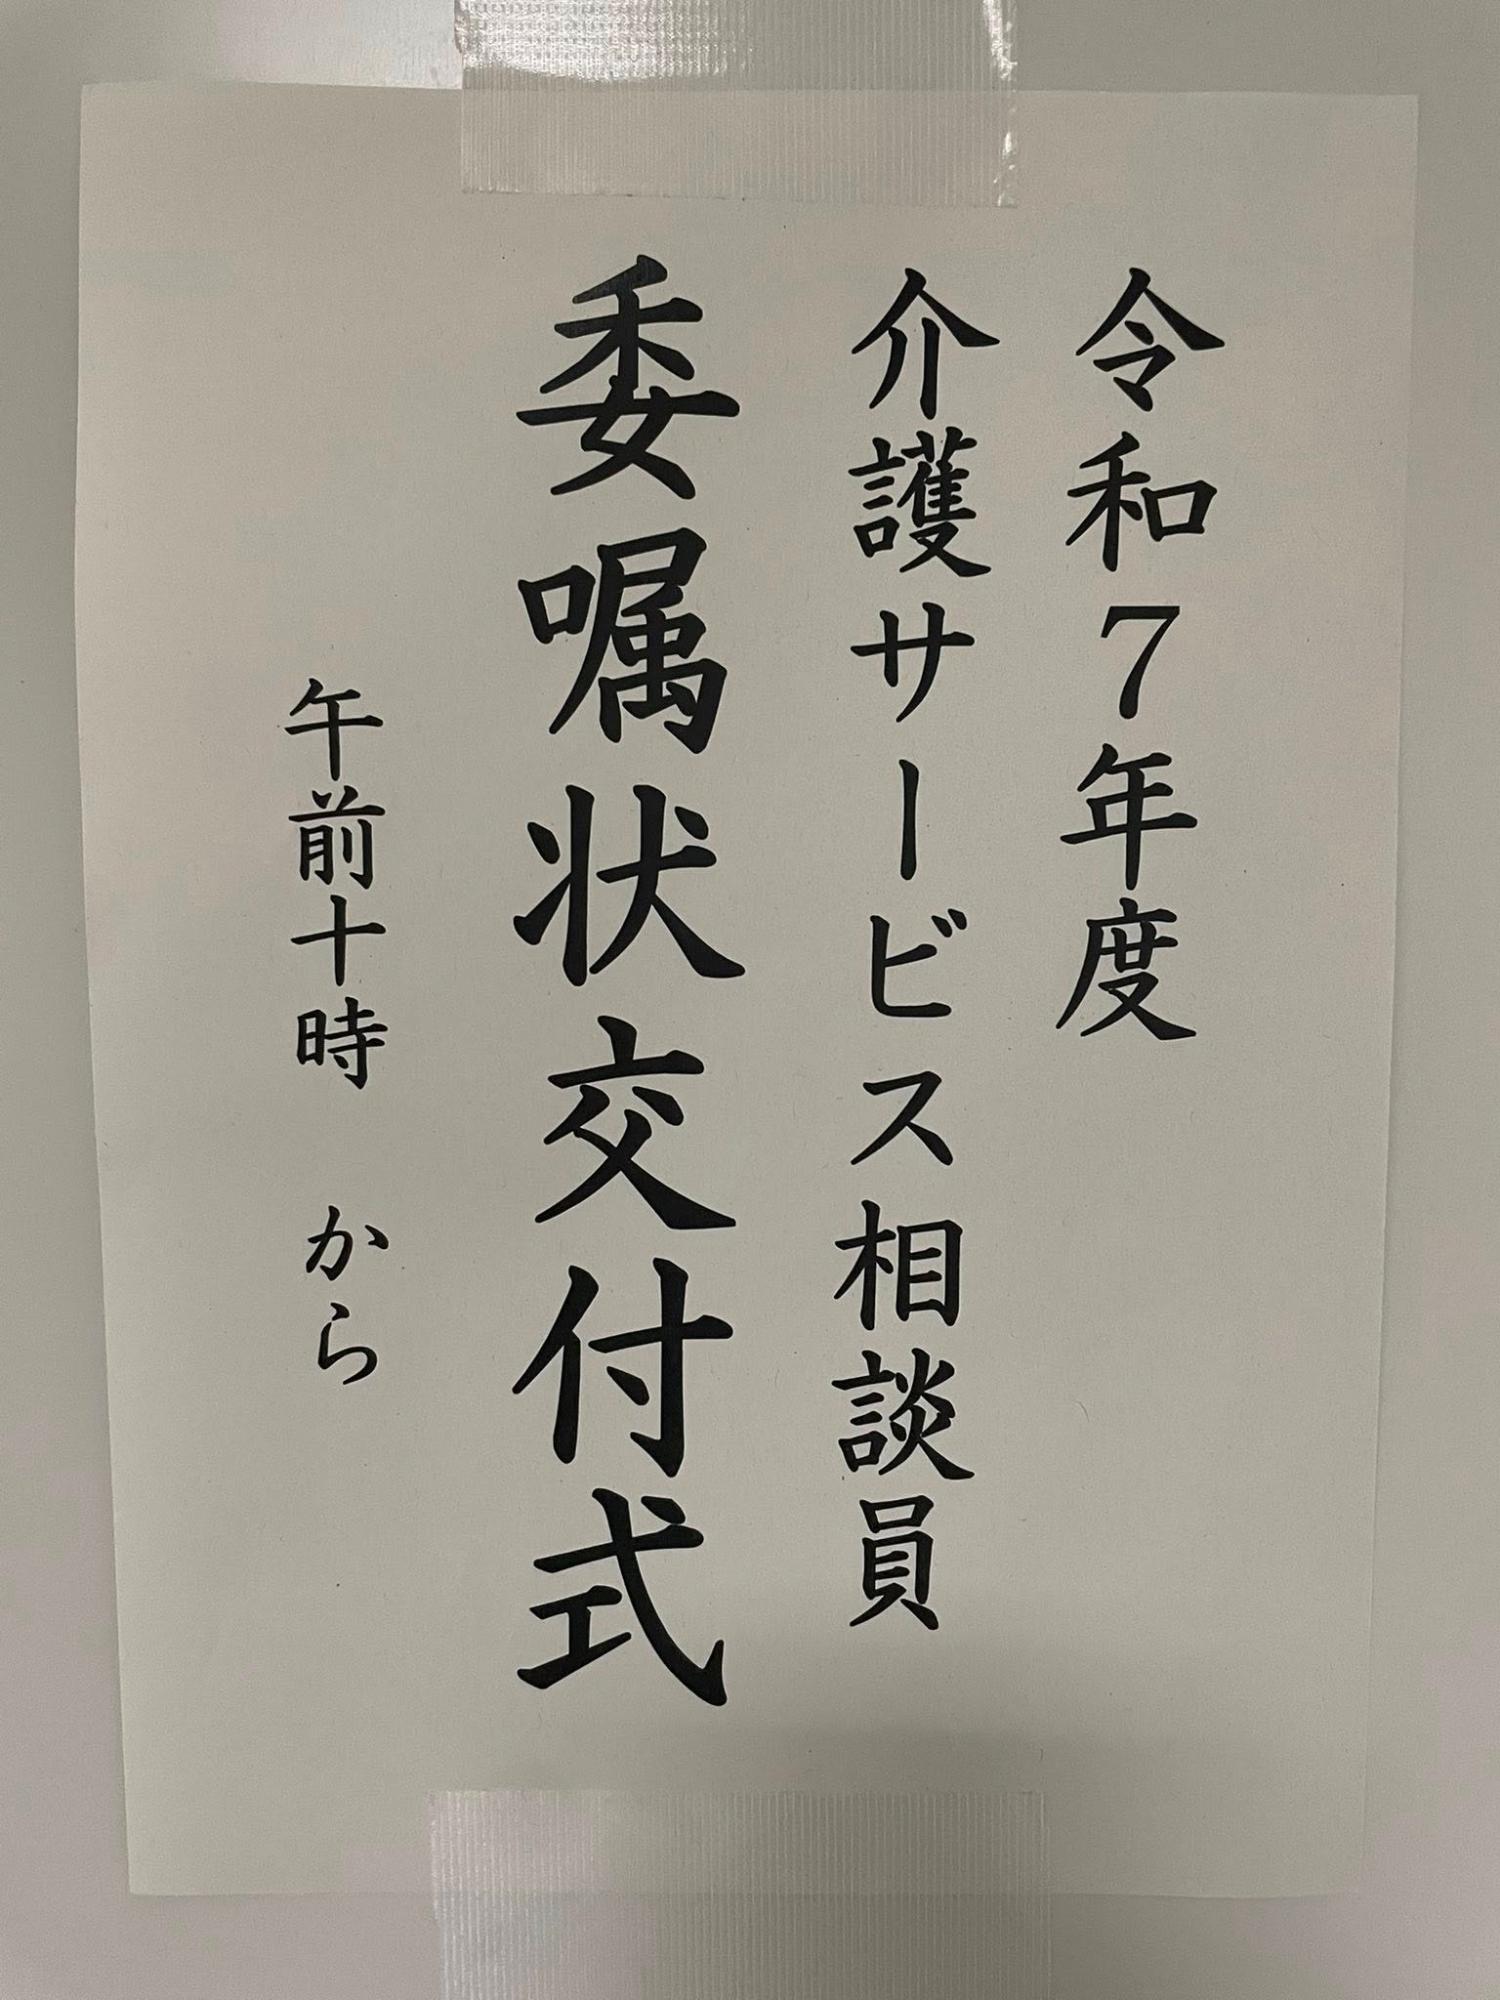 令和7年度
介護サービス相談員
委嘱状交付式
午前十時　から